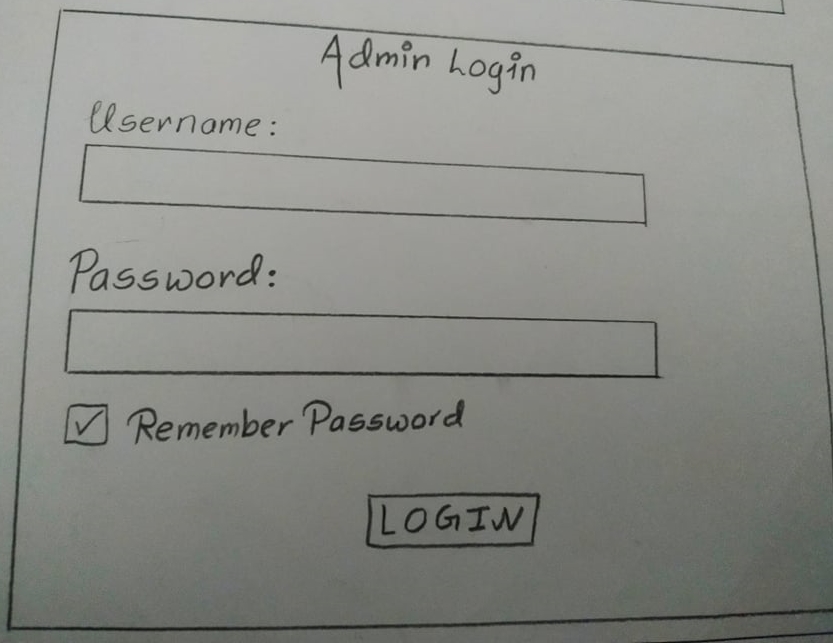 Admin Login
Username:
Password:
Remember Password
LOGIN